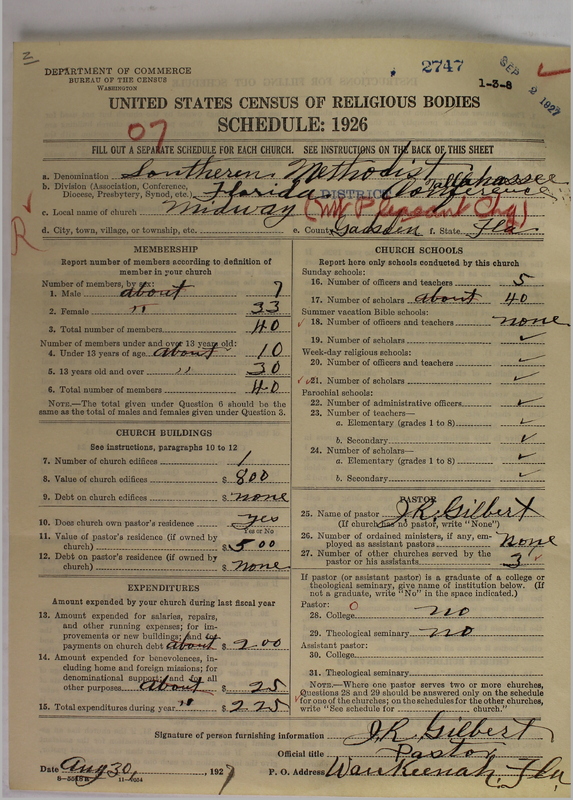 DEPARTMENT OF COMMERCE
BUREAU OF THE CENSUS
WASHINGTON
2747
1-3-8
SEP 2 1927
UNITED STATES CENSUS OF RELIGIOUS BODIES
SCHEDULE: 1926
07
FILL OUT A SEPARATE SCHEDULE FOR EACH CHURCH. SEE INSTRUCTIONS ON THE BACK OF THIS SHEET
a. Denomination Southern Methodist
b. Division (Association, Conference, Diocese, Presbytery, Synod, etc.) Florida Conference Tallahassee DISTRICT
c. Local name of church Midway (Mt Pleasant Chg)
d. City, town, village, or township, etc. e. County Gadsden f. State Fla
R
MEMBERSHIP
Report number of members according to definition of
member in your church
Number of members, by sex:
1. Male about 7
2. Female " 33
3. Total number of members 40
Number of members under and over 13 years old:
4. Under 13 years of age about 10
5. 13 years old and over " 30
6. Total number of members 40
NOTE.—The total given under Question 6 should be
the same as the total of males and females given under Question 3.
CHURCH BUILDINGS
See instructions, paragraphs 10 to 12
7. Number of church edifices 1
8. Value of church edifices $ 800
9. Debt on church edifices $ none
10. Does church own pastor's residence yes
Yes or No
11. Value of pastor's residence (if owned by
church) $ 500
12. Debt on pastor's residence (if owned by
church) $ none
EXPENDITURES
Amount expended by your church during last fiscal year
13. Amount expended for salaries, repairs,
and other running expenses; for im-
provements or new buildings; and for
payments on church debt about $ 200
14. Amount expended for benevolences, in-
cluding home and foreign missions; for
denominational support; and for all
other purposes about $ 25
15. Total expenditures during year " $ 225
CHURCH SCHOOLS
Report here only schools conducted by this church
Sunday schools:
16. Number of officers and teachers 5
17. Number of scholars about 40
Summer vacation Bible schools:
18. Number of officers and teachers none
19. Number of scholars ✓
Week-day religious schools:
20. Number of officers and teachers ✓
21. Number of scholars ✓
Parochial schools:
22. Number of administrative officers ✓
23. Number of teachers—
a. Elementary (grades 1 to 8) ✓
b. Secondary ✓
24. Number of scholars—
a. Elementary (grades 1 to 8) ✓
b. Secondary ✓
PASTOR
25. Name of pastor J.R. Gilbert
(If church has no pastor, write "None")
26. Number of ordained ministers, if any, em-
ployed as assistant pastors none
27. Number of other churches served by the
pastor or his assistants 3
If pastor (or assistant pastor) is a graduate of a college or
theological seminary, give name of institution below. (If
not a graduate, write "No" in the space indicated.)
Pastor:
28. College no
29. Theological seminary no
Assistant pastor:
30. College
31. Theological seminary
NOTE.—Where one pastor serves two or more churches,
Questions 28 and 29 should be answered only on the schedule
for one of the churches; on the schedules for the other churches,
write "See schedule for church."
Signature of person furnishing information J.R. Gilbert
Official title Pastor
Date Aug 30, 1927 P. O. Address Waukeenah, Fla
8-5518a 11-9024